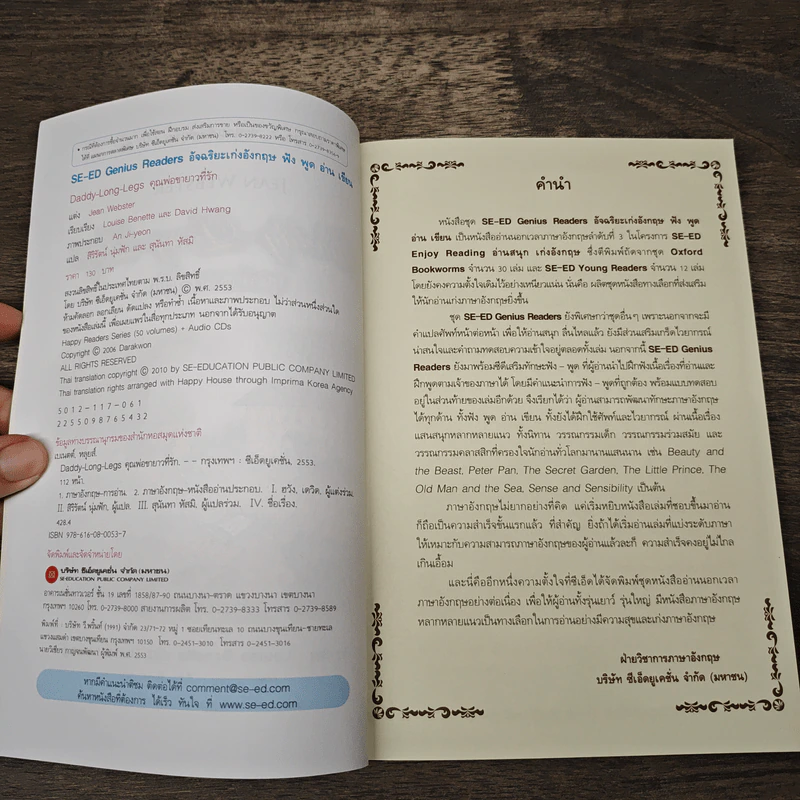 • กรณีที่ต้องการซื้อจำนวนมาก เพื่อใช้สอน ฝึกอบรม ส่งเสริมการขาย หรือเป็นของขวัญพิเศษ กรุณาสอบถามราคาพิเศษ
ได้ที่ แผนกการตลาดพิเศษ บริษัท ซีเอ็ดยูเคชั่น จำกัด (มหาชน) โทร. 0-2739-8222 หรือ โทรสาร 0-2739-8356-9
SE-ED Genius Readers อัจฉริยะเก่งอังกฤษ ฟัง พูด อ่าน เขียน
Daddy-Long-Legs คุณพ่อขายาวที่รัก
แต่ง Jean Webster
เรียบเรียง Louise Benette และ David Hwang
ภาพประกอบ An Ji-yeon
แปล สิริรัตน์ นุ่มฟัก และ สุนันทา หัสมิ
ราคา 130 บาท
สงวนลิขสิทธิ์ในประเทศไทยตาม พ.ร.บ. ลิขสิทธิ์
โดย บริษัท ซีเอ็ดยูเคชั่น จำกัด (มหาชน) © พ.ศ. 2553
ห้ามคัดลอก ลอกเลียน ดัดแปลง หรือทำซ้ำ เนื้อหาและภาพประกอบ ไม่ว่าส่วนหนึ่งส่วนใด
ของหนังสือเล่มนี้ เพื่อเผยแพร่ในสื่อทุกประเภท นอกจากได้รับอนุญาต
Happy Readers Series (50 volumes) + Audio CDs
Copyright © 2006 Darakwon
ALL RIGHTS RESERVED
Thai translation copyright © 2010 by SE-EDUCATION PUBLIC COMPANY LIMITED
Thai translation rights arranged with Happy House through Imprima Korea Agency
5012-117-061
2255098765432
ข้อมูลทางบรรณานุกรมของสำนักหอสมุดแห่งชาติ
เบเนตต์, หลุยส์.
Daddy-Long-Legs คุณพ่อขายาวที่รัก. -- กรุงเทพฯ : ซีเอ็ดยูเคชั่น, 2553.
112 หน้า.
1. ภาษาอังกฤษ-การอ่าน. 2. ภาษาอังกฤษ-หนังสืออ่านประกอบ. I. ฮวัง, เดวิด, ผู้แต่งร่วม.
II. สิริรัตน์ นุ่มฟัก, ผู้แปล. III. สุนันทา หัสมิ, ผู้แปลร่วม. IV. ชื่อเรื่อง.
428.4
ISBN 978-616-08-0053-7
จัดพิมพ์และจัดจำหน่ายโดย
บริษัท ซีเอ็ดยูเคชั่น จำกัด (มหาชน)
SE-EDUCATION PUBLIC COMPANY LIMITED
อาคารเนชั่นทาวเวอร์ ชั้น 19 เลขที่ 1858/87-90 ถนนบางนา-ตราด แขวงบางนา เขตบางนา
กรุงเทพฯ 10260 โทร. 0-2739-8000 สายงานการผลิต โทร. 0-2739-8333 โทรสาร 0-2739-8589
พิมพ์ที่ : บริษัท วี.พริ้นท์ (1991) จำกัด 23/71-72 หมู่ 1 ซอยเทียนทะเล 10 ถนนบางขุนเทียน-ชายทะเล
แขวงแสมดำ เขตบางขุนเทียน กรุงเทพฯ 10150 โทร. 0-2451-3010 โทรสาร 0-2451-3016
นายวิเชียร กาญจนพัฒนา ผู้พิมพ์ พ.ศ. 2553
หากมีคำแนะนำติชม ติดต่อได้ที่ comment@se-ed.com
ค้นหาหนังสือที่ต้องการ ได้เร็ว ทันใจ ที่ www.se-ed.com
คำนำ
หนังสือชุด SE-ED Genius Readers อัจฉริยะเก่งอังกฤษ ฟัง พูด
อ่าน เขียน เป็นหนังสืออ่านนอกเวลาภาษาอังกฤษลำดับที่ 3 ในโครงการ SE-ED
Enjoy Reading อ่านสนุก เก่งอังกฤษ ซึ่งตีพิมพ์ถัดจากชุด Oxford
Bookworms จำนวน 30 เล่ม และ SE-ED Young Readers จำนวน 12 เล่ม
โดยยังคงความตั้งใจเดิมไว้อย่างเหนียวแน่น นั่นคือ ผลิตชุดหนังสือทางเลือกที่ส่งเสริม
ให้นักอ่านเก่งภาษาอังกฤษยิ่งขึ้น
ชุด SE-ED Genius Readers ยังพิเศษกว่าชุดอื่นๆ เพราะนอกจากจะมี
คำแปลศัพท์หน้าต่อหน้า เพื่อให้อ่านสนุก ลื่นไหลแล้ว ยังมีส่วนเสริมเกร็ดไวยากรณ์
น่าสนใจและคำถามทดสอบความเข้าใจอยู่ตลอดทั้งเล่ม นอกจากนี้ SE-ED Genius
Readers ยังมาพร้อมซีดีเสริมทักษะฟัง – พูด ที่ผู้อ่านนำไปฝึกฟังเนื้อเรื่องที่อ่านและ
ฝึกพูดตามเจ้าของภาษาได้ โดยมีคำแนะนำการฟัง – พูดที่ถูกต้อง พร้อมแบบทดสอบ
อยู่ในส่วนท้ายของเล่มอีกด้วย จึงเรียกได้ว่า ผู้อ่านสามารถพัฒนาทักษะภาษาอังกฤษ
ได้ทุกด้าน ทั้งฟัง พูด อ่าน เขียน ทั้งยังได้ฝึกใช้ศัพท์และไวยากรณ์ ผ่านเนื้อเรื่อง
แสนสนุกหลากหลายแนว ทั้งนิทาน วรรณกรรมเด็ก วรรณกรรมร่วมสมัย และ
วรรณกรรมคลาสสิกที่ครองใจนักอ่านทั่วโลกมานานแสนนาน เช่น Beauty and
the Beast, Peter Pan, The Secret Garden, The Little Prince, The
Old Man and the Sea, Sense and Sensibility เป็นต้น
ภาษาอังกฤษไม่ยากอย่างที่คิด แค่เริ่มหยิบหนังสือเล่มที่ชอบขึ้นมาอ่าน
ก็ถือเป็นความสำเร็จขั้นแรกแล้ว ที่สำคัญ ยิ่งถ้าได้เริ่มอ่านเล่มที่แบ่งระดับภาษา
ให้เหมาะกับความสามารถภาษาอังกฤษของผู้อ่านแล้วละก็ ความสำเร็จคงอยู่ไม่ไกล
เกินเอื้อม
และนี่คืออีกหนึ่งความตั้งใจที่ซีเอ็ดได้จัดพิมพ์ชุดหนังสืออ่านนอกเวลา
ภาษาอังกฤษอย่างต่อเนื่อง เพื่อให้ผู้อ่านทั้งรุ่นเยาว์ รุ่นใหญ่ มีหนังสือภาษาอังกฤษ
หลากหลายแนวเป็นทางเลือกในการอ่านอย่างมีความสุขและเก่งภาษาอังกฤษ
ฝ่ายวิชาการภาษาอังกฤษ
บริษัท ซีเอ็ดยูเคชั่น จำกัด (มหาชน)